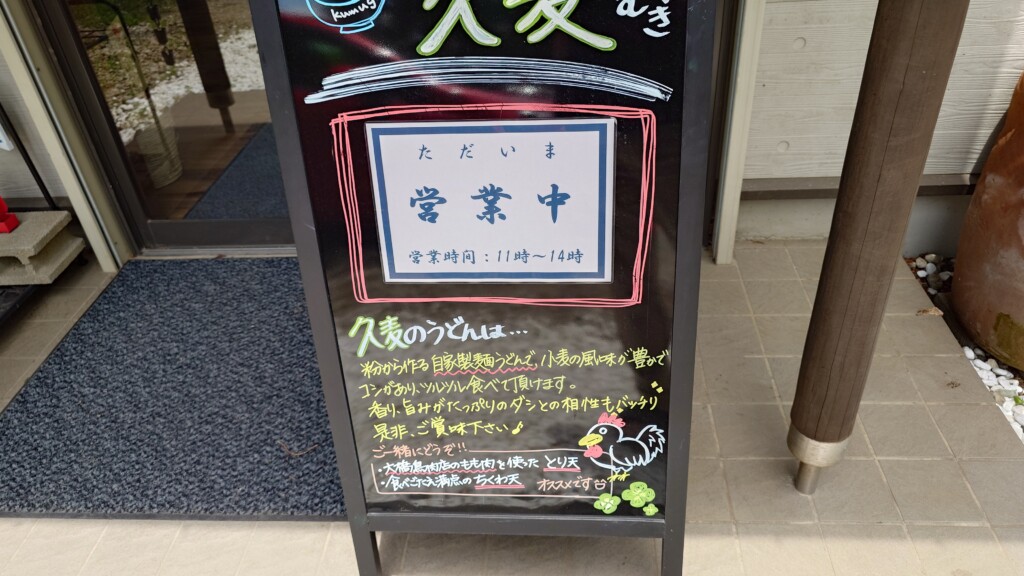 kumug
久麦
むぎ
ただいま
営業中
営業時間：11時～14時
久麦のうどんは…
粉から作る自家製麺うどんで、小麦の風味が豊かで
コシがあり、ツルツル食べて頂けます。
香り、旨みがたっぷりのダシとの相性もバッチリ
是非、ご賞味下さい♪
ご一緒にどうぞ!!
・大橋鳥肉店のもも肉を使った とり天
・食べごたえ満点の ちくわ天 オススメです